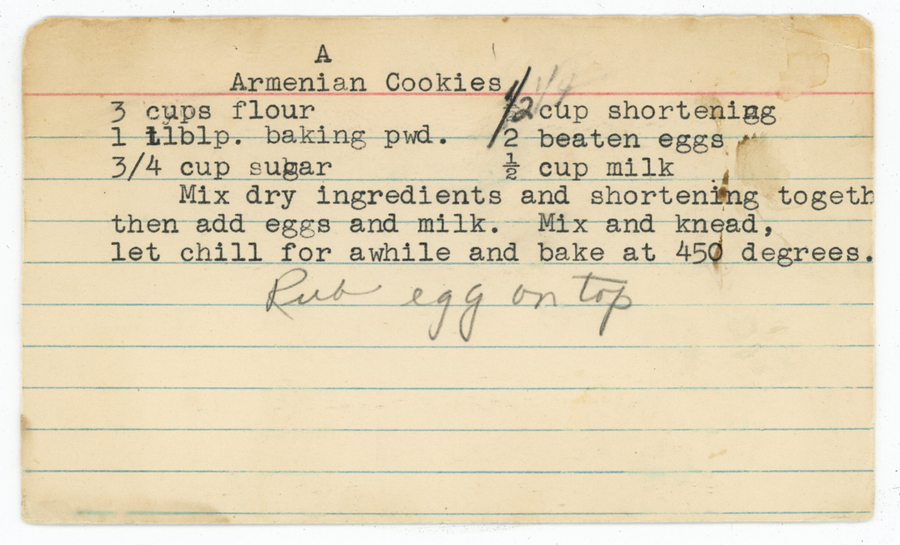 A
Armenian Cookies
3 cups flour 1/2 cup shortening
1 tlblp. baking pwd. 2 beaten eggs
3/4 cup sugar ½ cup milk
Mix dry ingredients and shortening togeth
then add eggs and milk. Mix and knead,
let chill for awhile and bake at 450 degrees.
Rub egg on top